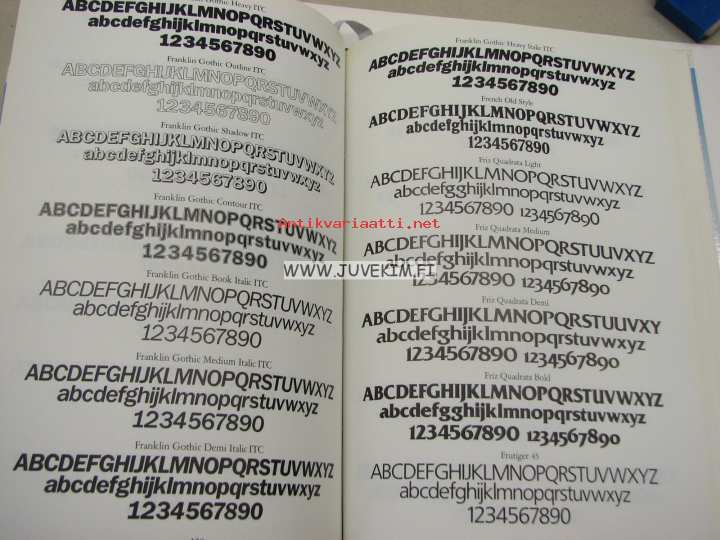 Franklin Gothic Heavy ITC
ABCDEFGHIJKLMNOPQRSTUVWXYZ
abcdefghijklmnopqrstuvwxyz
1234567890
Franklin Gothic Outline ITC
ABCDEFGHIJKLMNOPQRSTUVWXYZ
abcdefghijklmnopqrstuvwxyz
1234567890
Franklin Gothic Shadow ITC
ABCDEFGHIJKLMNOPQRSTUVWXYZ
abcdefghijklmnopqrstuvwxyz
1234567890
Franklin Gothic Contour ITC
ABCDEFGHIJKLMNOPQRSTUVWXYZ
abcdefghijklmnopqrstuvwxyz
1234567890
Franklin Gothic Book Italic ITC
ABCDEFGHIJKLMNOPQRSTUVWXYZ
abcdefghijklmnopqrstuvwxyz
1234567890
Franklin Gothic Medium Italic ITC
ABCDEFGHIJKLMNOPQRSTUVWXYZ
abcdefghijklmnopqrstuvwxyz
1234567890
Franklin Gothic Demi Italic ITC
ABCDEFGHIJKLMNOPQRSTUVWXYZ
abcdefghijklmnopqrstuvwxyz
1234567890
Franklin Gothic Heavy Italic ITC
ABCDEFGHIJKLMNOPQRSTUVWXYZ
abcdefghijklmnopqrstuvwxyz
1234567890
French Old Style
ABCDEFGHIJKLMNOPQRSTUVWXYZ
abcdefghijklmnopqrstuvwxyz
1234567890
Friz Quadrata Light
ABCDEFGHIJKLMNOPQRSTUVWXYZ
abcdefgghijklmnopqrstuvwxyz
1234567890 1234567890
Friz Quadrata Medium
ABCDEFGHIJKLMNOPQRSTUVWXYZ
abcdefgghijklmnopqrstuvwxyz
1234567890 1234567890
Friz Quadrata Demi
ABCDEFGHIJKLMNOPQRSTUVWXY
abcdefgghijklmnopqrstuvwxyz
1234567890 1234567890
Friz Quadrata Bold
ABCDEFGHIJKLMNOPQRSTUVWXYZ
abcdefgghijklmnopqrstuvwxyz
1234567890 1234567890
Frutiger 45
ABCDEFGHIJKLMNOPQRSTUVWXYZ
abcdefghijklmnopqrstuvwxyz
1234567890
Antikvariaatti.net
WWW.JUVEKIM.FI